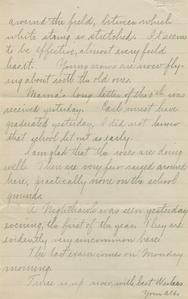 around the field, between which
white string is stretched. It seems
to be effective, almost every field
has it. Young crows are now fly-
ing about with the old ones.
Mama's long letter of the 8th was
received yesterday. Carl must have
graduated yesterday. I did not know
that school let out so early.
I am glad that the roses are doing
well. There are very few raised around
here, practically none on the school
grounds.
A Nighthawk was seen yesterday
evening, the first of the year. They are
evidently very uncommon here.
The last exam comes on Monday
morning.
Time is up now, with best wishes
Your